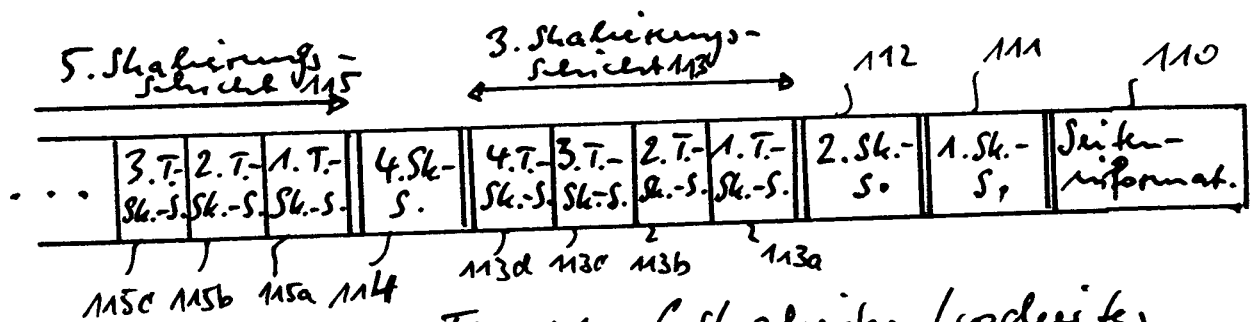 5. Skalierungs-
schicht 115
3. Skalierungs-
schicht 113
112
111
110
. . .
3. T.-
Sk.-S.
2. T.-
Sk.-S.
1. T.-
Sk.-S.
4. Sk-
S.
4. T.-
Sk.-S.
3. T.-
Sk.-S.
2. T.-
Sk.-S.
1. T.-
Sk.-S.
2. Sk.-
S.
1. Sk.-
S.
Seiten-
informat.
115c 115b 115a 114 113d 113c 113b 113a